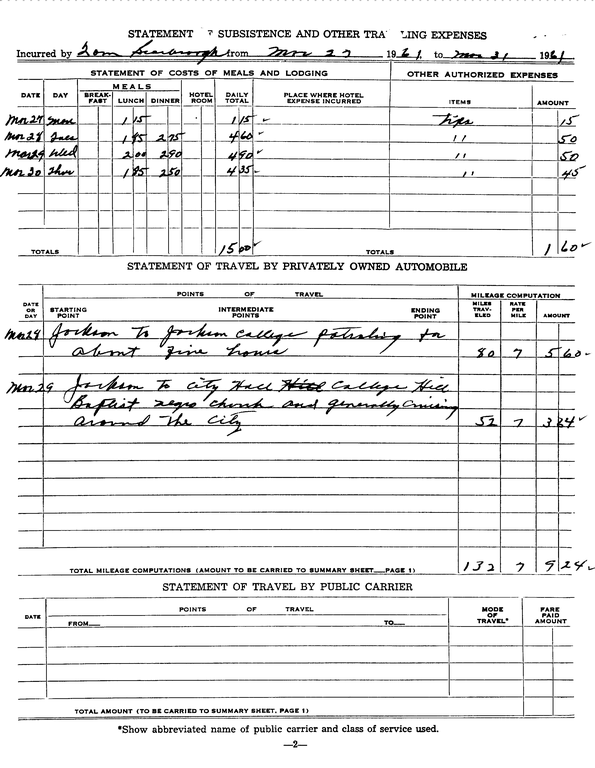 STATEMENT SUBSISTENCE AND OTHER TRA LING EXPENSES
Incurred by Tom Scarbrough from Mar 27 1961 to Mar 31 1961
STATEMENT OF COSTS OF MEALS AND LODGING OTHER AUTHORIZED EXPENSES
DATE DAY MEALS BREAK-FAST LUNCH DINNER HOTEL ROOM DAILY TOTAL PLACE WHERE HOTEL EXPENSE INCURRED ITEMS AMOUNT
Mar 27 Mon 1 15 1 15 tips 15
Mar 28 Tues 1 85 2 75 4 60 " 50
Mar 29 Wed 2 00 2 90 4 90 " 50
Mar 30 Thur 1 85 2 50 4 35 " 45
TOTALS 15 00 TOTALS 1 60
STATEMENT OF TRAVEL BY PRIVATELY OWNED AUTOMOBILE
POINTS OF TRAVEL MILEAGE COMPUTATION
DATE OR DAY STARTING POINT INTERMEDIATE POINTS ENDING POINT MILES TRAV-ELED RATE PER MILE AMOUNT
Mar 28 Jackson to Jackson College patroling for
about five hours 80 7 5 60
Mar 29 Jackson to City Hall College Hill
Baptist negro church and generally cruising
around the city 52 7 3 64
TOTAL MILEAGE COMPUTATIONS (AMOUNT TO BE CARRIED TO SUMMARY SHEET__PAGE 1) 132 7 9 24
STATEMENT OF TRAVEL BY PUBLIC CARRIER
DATE POINTS OF TRAVEL MODE OF TRAVEL* FARE PAID AMOUNT
FROM__ TO__
TOTAL AMOUNT (TO BE CARRIED TO SUMMARY SHEET, PAGE 1)
*Show abbreviated name of public carrier and class of service used.
—2—